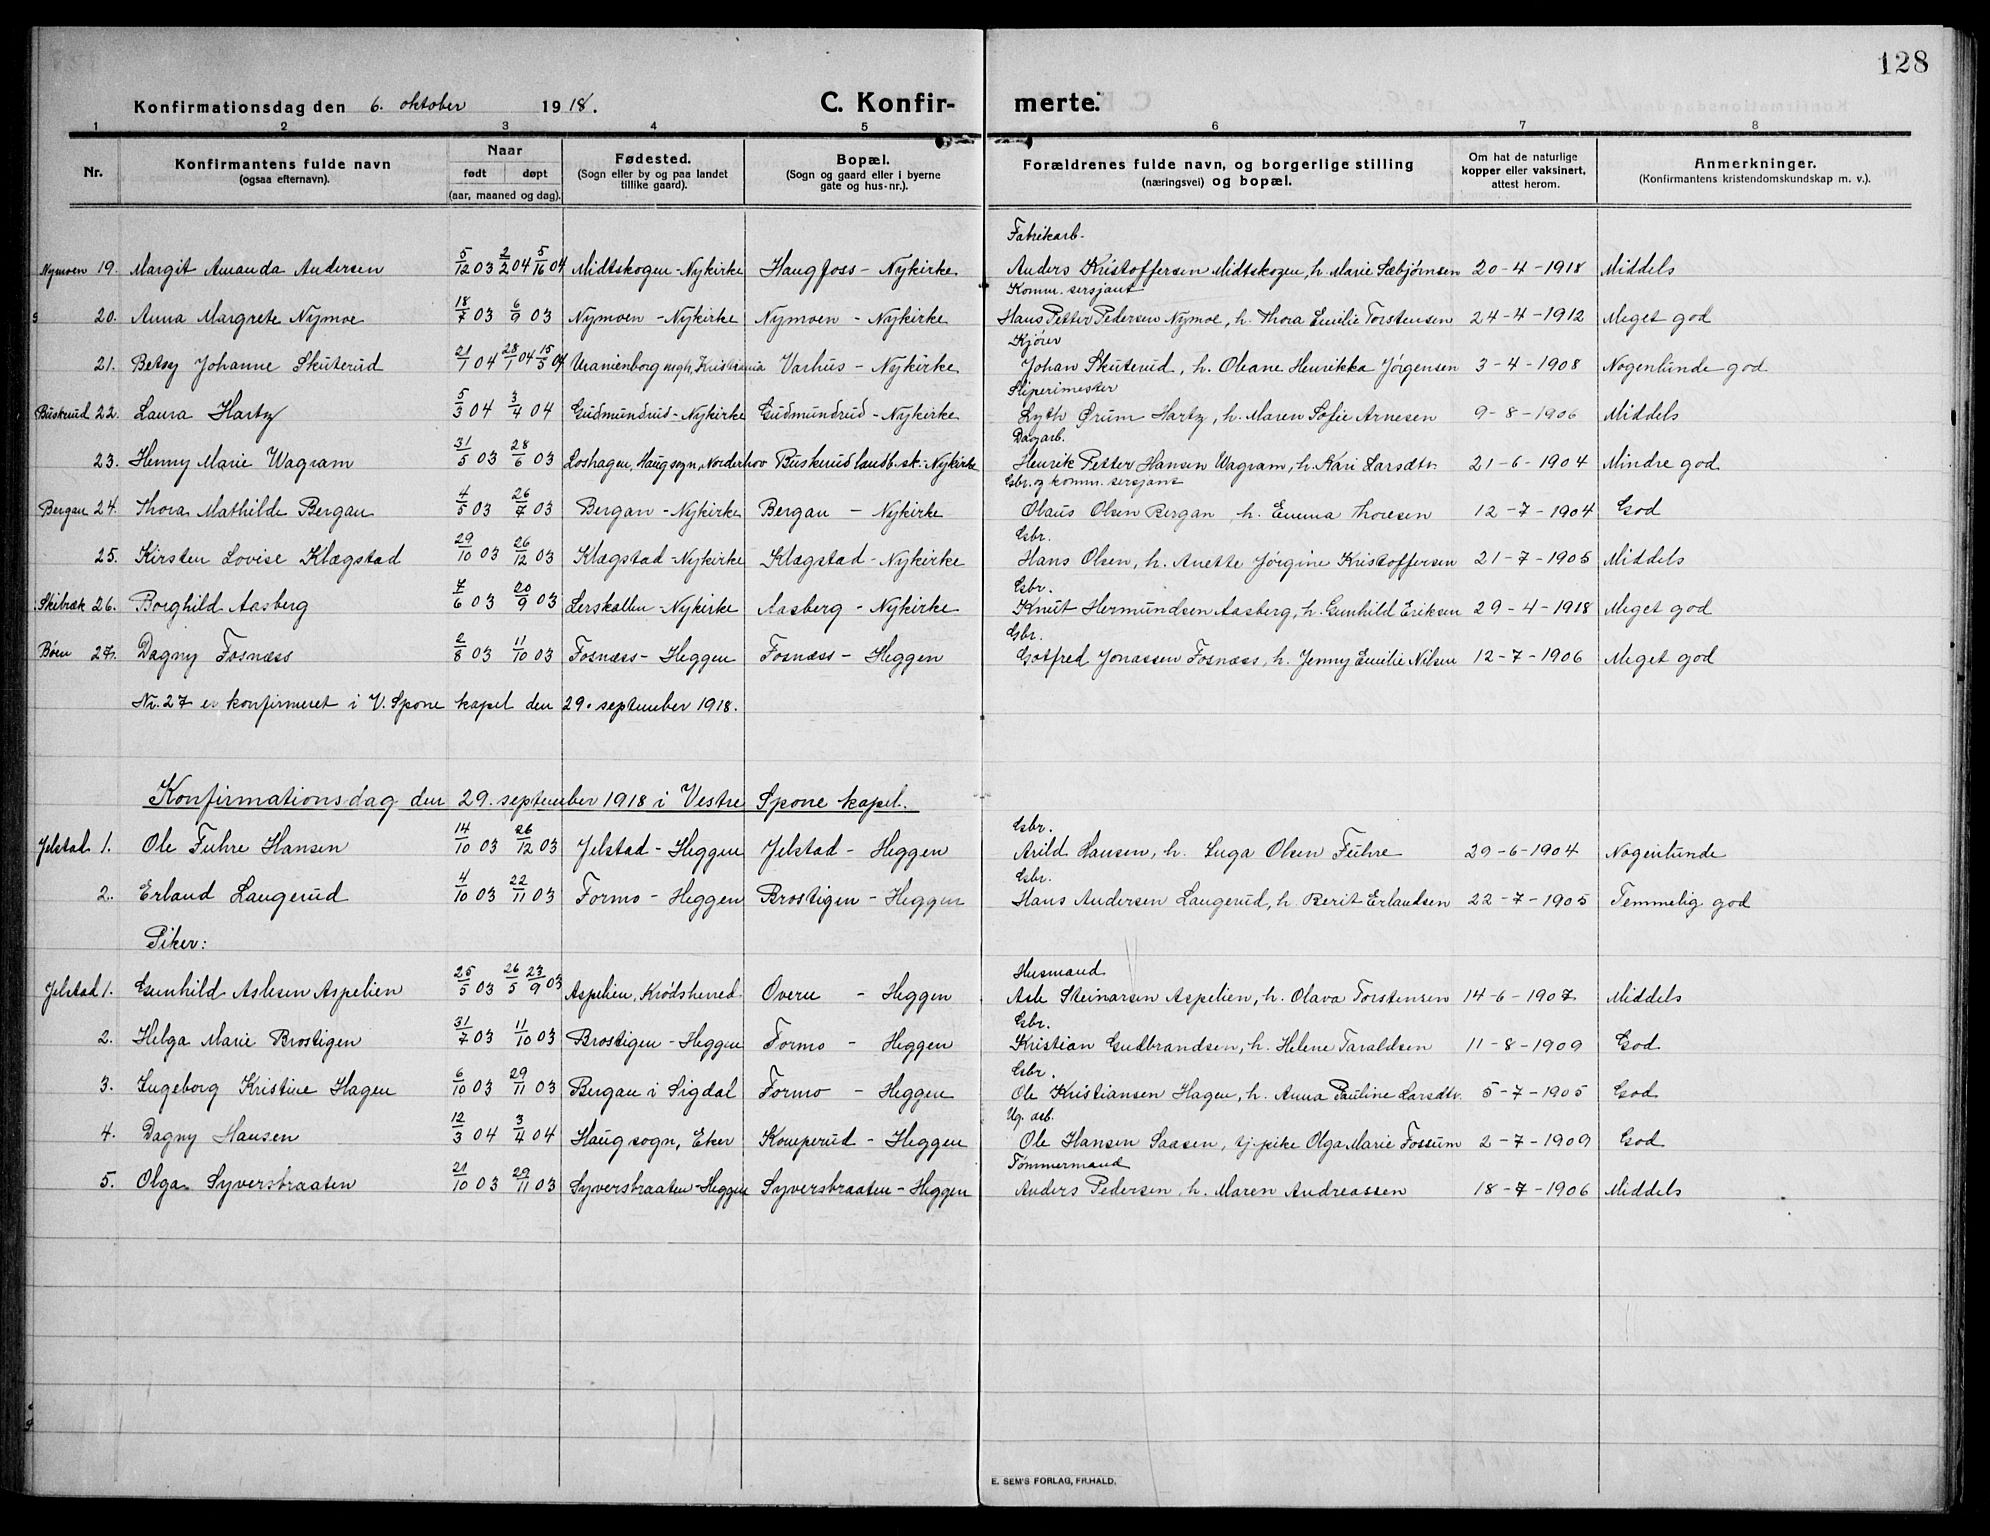 128
Konfirmationsdag den 6. oktober 1918. C. Konfir- merte.
1 2 3 4 5 6 7 8
Nr. Konfirmantens fulde navn (ogsaa efternavn). Naar født døpt (aar, maaned og dag). Fødested. (Sogn eller by og paa landet tillike gaard). Bopæl. (Sogn og gaard eller i byerne gate og hus-nr.). Forældrenes fulde navn, og borgerlige stilling (næringsvei) og bopæl. Om hat de naturlige kopper eller vaksinert, attest herom. Anmerkninger. (Konfirmantens kristendomskundskap m. v.).
Fabrikarb.
Nymoen 19. Margit Amanda Andersen 5/12 03 2/2 04 5/16 04 Midtskogen - Nykirke Haugfoss - Nykirke Anders Kristoffersen Midtskogen, h. Marie Sæbjørnsen 20-4-1918 Middels
Komm. sersjant
s 20. Anna Margrete Nymoe 18/7 03 6/9 03 Nymoen - Nykirke Nymoen - Nykirke Hans Petter Pedersen Nymoe, h. Thora Emilie Torstensen 24-4-1912 Meget god
Kjører
21. Betsy Johanne Skuterud 21/1 04 28/1 04 15/5 04 Uranienborg mgh, Kristiania Varhus - Nykirke Johan Skuterud, h. Oleane Henrikka Jørgensen 3-4-1908 Nogenlunde god
Sliperimester
Buskrud 22. Laura Hartz 5/3 04 3/4 04 Gudmundrud - Nykirke Gudmundrud - Nykirke Lyth Ørum Hartz, h. Maren Sofie Arnesen 9-8-1906 Middels
Dagarb.
23. Henny Marie Wagram 31/5 03 28/6 03 Loshagen, Haugsogn, Norderhov Buskerud landb.sk. - Nykirke Henrik Petter Hansen Wagram, h. Kari Larsdtr. 21-6-1904 Mindre god
Gbr. og komm. sersjant
Bergan 24. Thora Mathilde Bergan 4/5 03 26/7 03 Bergan - Nykirke Bergan - Nykirke Olaus Olsen Bergan, h. Emma Thoresen 12-7-1904 God
Gbr.
25. Kirsten Lovise Klægstad 29/10 03 26/12 03 Klægstad - Nykirke Klægstad - Nykirke Hans Olsen, h. Anette Jørgine Kristoffersen 21-7-1905 Middels
Gbr.
Skibræk 26. Borghild Aasberg 7/6 03 20/9 03 Lerskallen - Nykirke Aasberg - Nykirke Knut Hermundsen Aasberg, h. Gunhild Eriksen 29-4-1918 Meget god
Gbr.
Bøen 27. Dagny Fosnæss 2/8 03 11/10 03 Fosnæss - Heggen Fosnæss - Heggen Gotfred Jonassen Fosnæss, h. Jenny Emilie Nilsen 12-7-1906 Meget god
Nr. 27 er konfirmeret i V. Spone kapel den 29. september 1918.
Konfirmationsdag den 29. september 1918 i Vestre Spone kapel.
Gbr.
Jelstad 1. Ole Fuhre Hansen 14/10 03 26/12 03 Jelstad - Heggen Jelstad - Heggen Arild Hansen, h. Inga Olsen Fuhre 29-6-1904 Nogenlunde
Gbr.
2. Erland Laugerud 4/10 03 22/11 03 Formo - Heggen Brostigen - Heggen Hans Andersen Laugerud, h. Berit Erlandsen 22-7-1905 Temmelig god
Piker:
Husmand
Jelstad 1. Gunhild Aslesen Aspelien 25/5 03 26/5 23/9 03 Aspelien, Krødsherred Overn - Heggen Asle Steinarsen Aspelien, h. Olava Torstensen 14-6-1907 Middels
Gbr.
2. Helga Marie Brostigen 31/7 03 11/10 03 Brostigen - Heggen Formo - Heggen Kristian Gudbrandsen, h. Helene Taraldsen 11-8-1909 God
Gbr.
3. Ingeborg Kristine Hagen 6/10 03 29/11 03 Bergan i Sigdal Formo - Heggen Ole Kristiansen Hagen, h. Anna Pauline Larsdtr. 5-7-1905 God
Ug. arb.
4. Dagny Hansen 12/3 04 3/4 04 Haug sogn, Eker Koneperud - Heggen Ole Hansen Saasen, tj. pike Olga Marie Fossum 2-7-1909 God
Tømmermand
5. Olga Syverstraaten 21/10 03 29/11 03 Syverstraaten - Heggen Syverstraaten - Heggen Anders Pedersen, h. Maren Andreassen 18-7-1906 Middels
E. SEM'S FORLAG, FR.HALD.